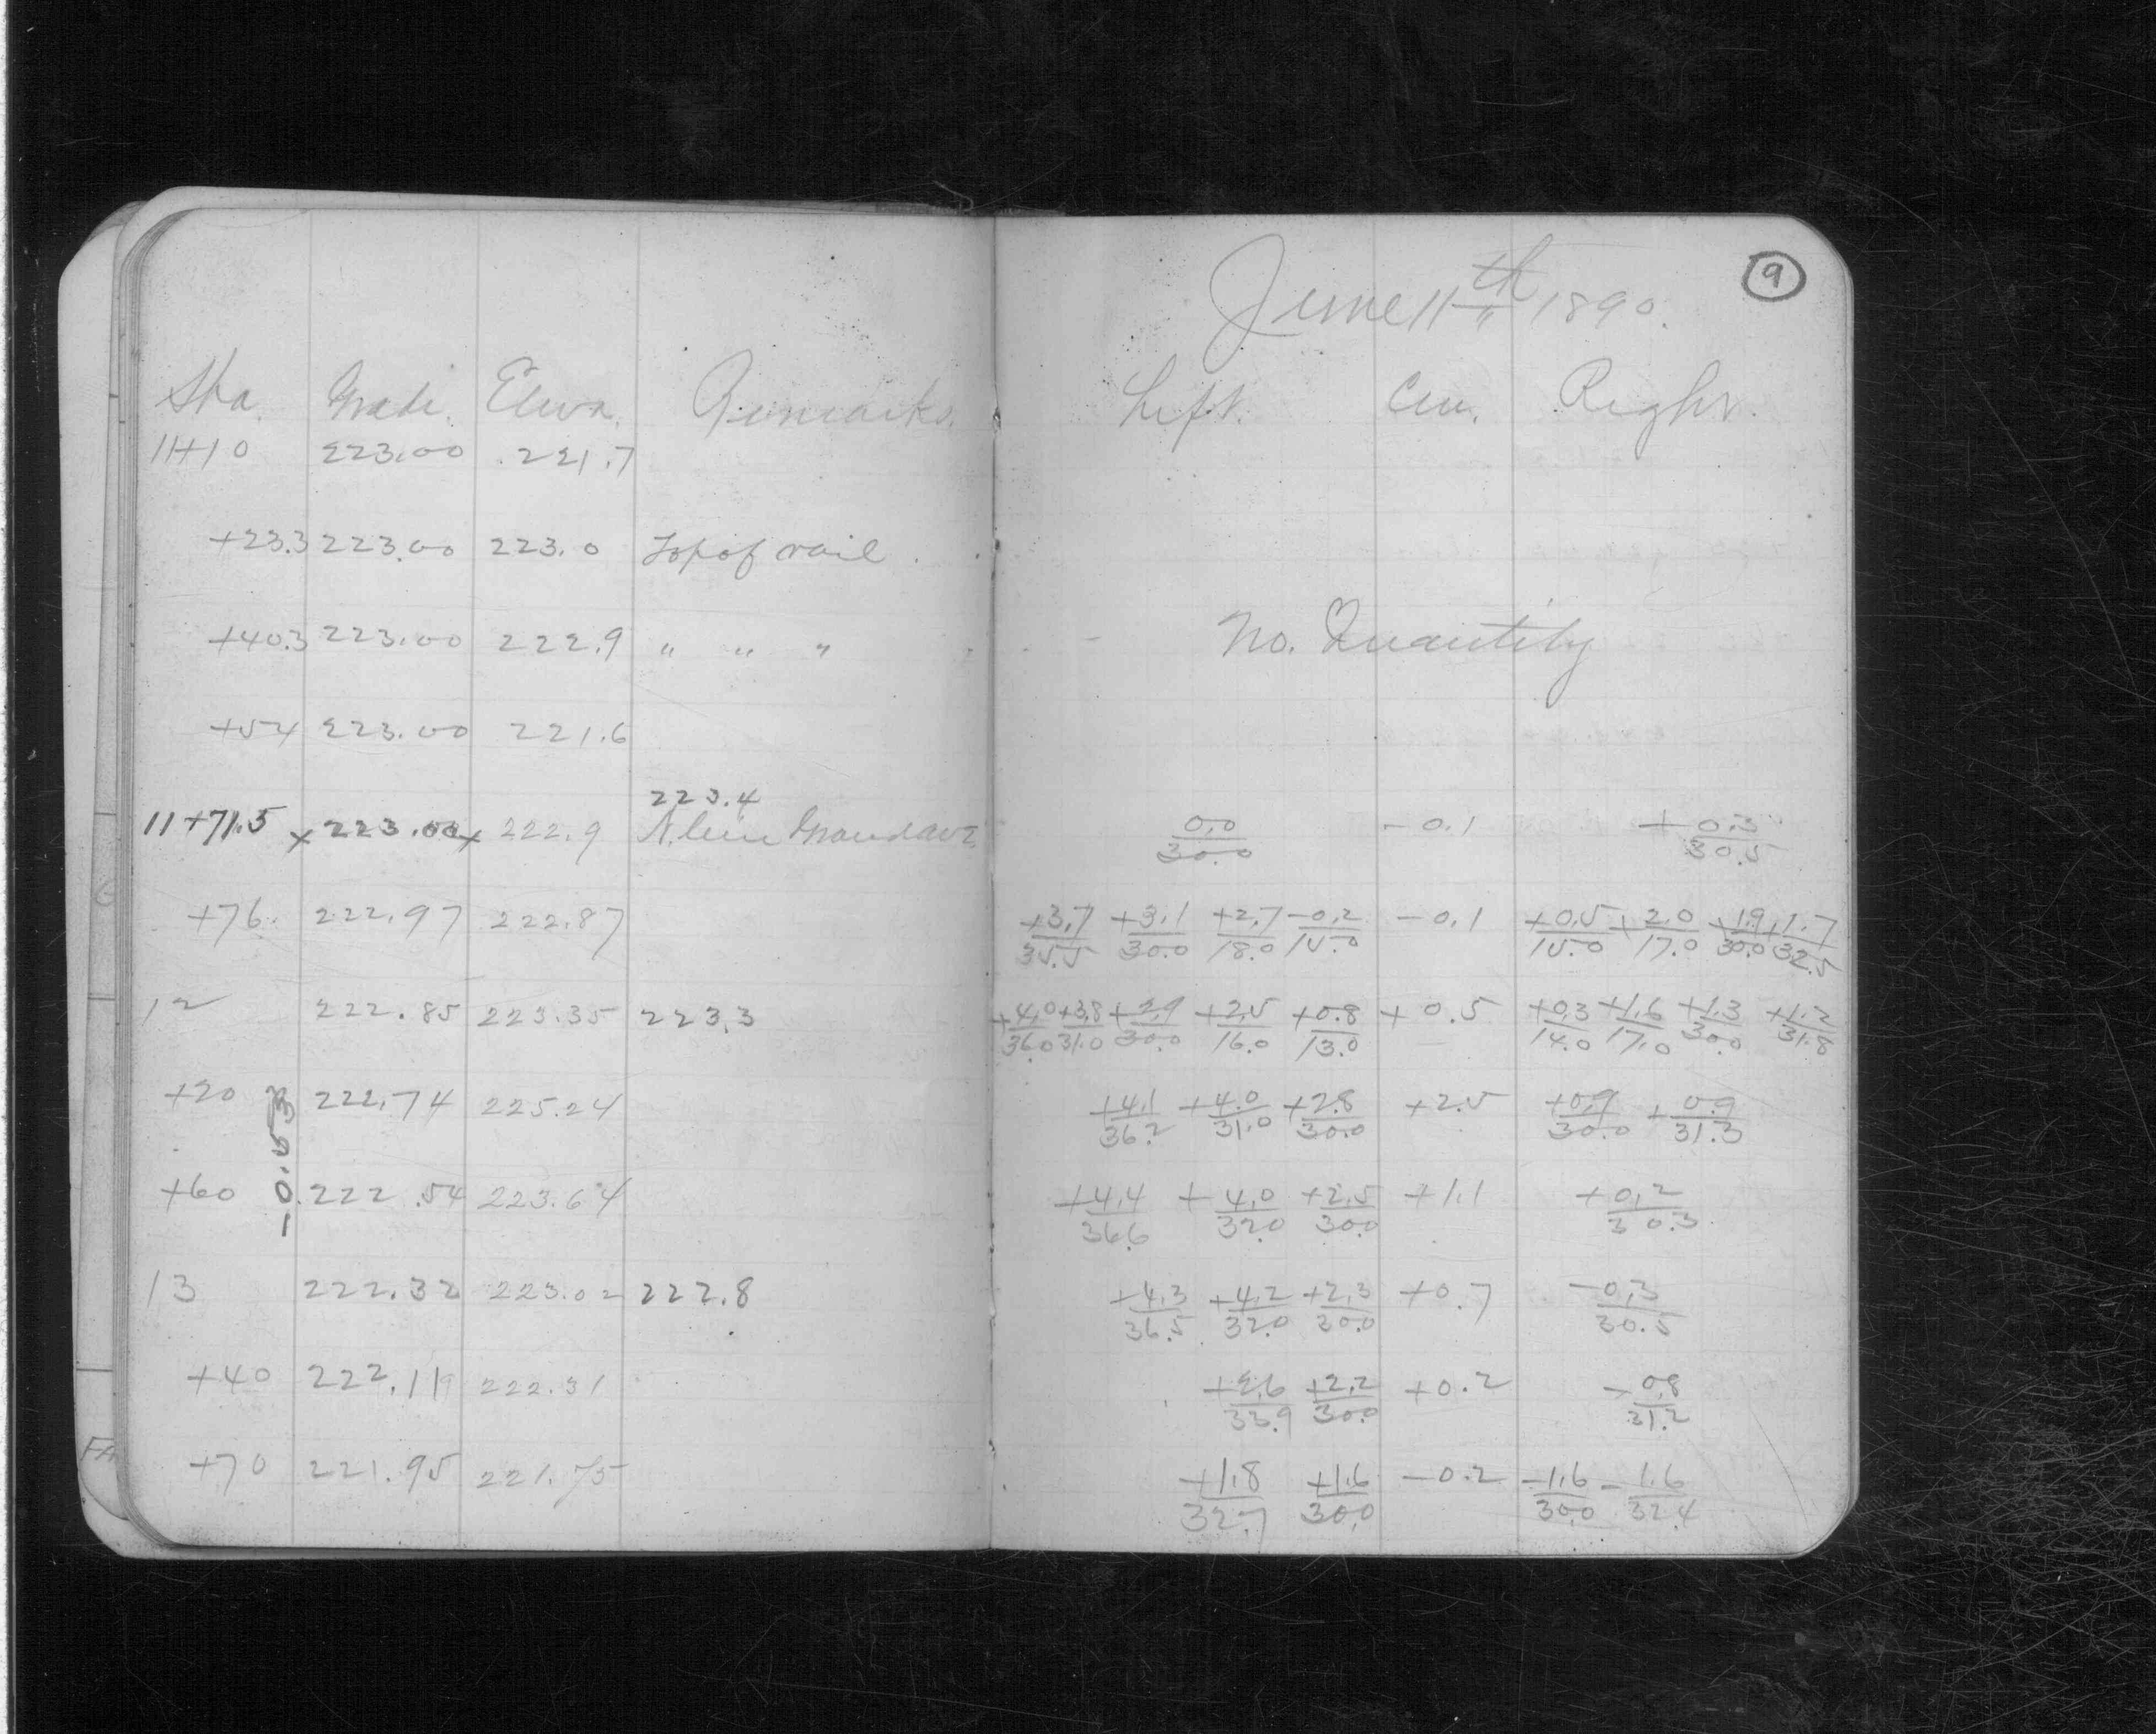 June 11th 1890. 9
Sta. Grade. Eleva. Remarks. Left. Cen. Right.
11+10 223.00 221.7
+23.3 223.00 223.0 Top of rail
+40.3 223.00 222.9 " " "
No. Quantity
+54 223.00 221.6
223.4
11+71.5 x 223.00 x 222.9 N. line Grand ave 0.0/30.0 -0.1 +0.3/30.5
+76. 222.97 222.87 +3.7/35.5 +3.1/30.0 +2.7/18.0 -0.2/15.0 -0.1 +0.5/15.0 +2.0/17.0 +1.9/30.0 +1.7/32.5
12 222.85 223.35 223.3 +4.0/36.0 +3.8/31.0 +2.9/30.0 +2.5/16.0 +0.8/13.0 +0.5 +0.3/14.0 +1.6/17.0 +1.3/30.0 +1.2/31.8
+20 222.74 225.24 +4.1/36.2 +4.0/31.0 +2.8/30.0 +2.5 +0.9/30.0 +0.9/31.3
+60 222.54 223.64 +4.4/36.6 +4.0/32.0 +2.5/30.0 +1.1 +0.2/30.3
13 222.32 223.02 222.8 +4.3/36.5 +4.2/32.0 +2.3/30.0 +0.7 -0.3/30.5
+40 222.11 222.31 +2.6/33.9 +2.2/30.0 +0.2 -0.8/31.2
+70 221.95 221.75 +1.8/32.7 +1.6/30.0 -0.2 -1.6/30.0 -1.6/32.4